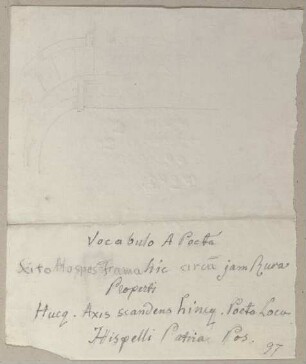 Vocabulo A Poctá
Scito Hospes Fama hic circa jam Rura
Properti
Hucq. Axis scandens hincq. Pocta Loca
Hispelli Patria Pos.
97